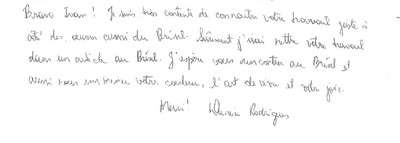 Bravo Ivan! Je suis très contente de connaitre votre travail juste à
côté des aussi du Brésil. j'irai mettre votre travail
dans un article au Brésil. J'espère vous rencontrer au Brésil et
ainsi nous votre couleur, l'art de vivre et votre joie.
Merci! Rodrigues